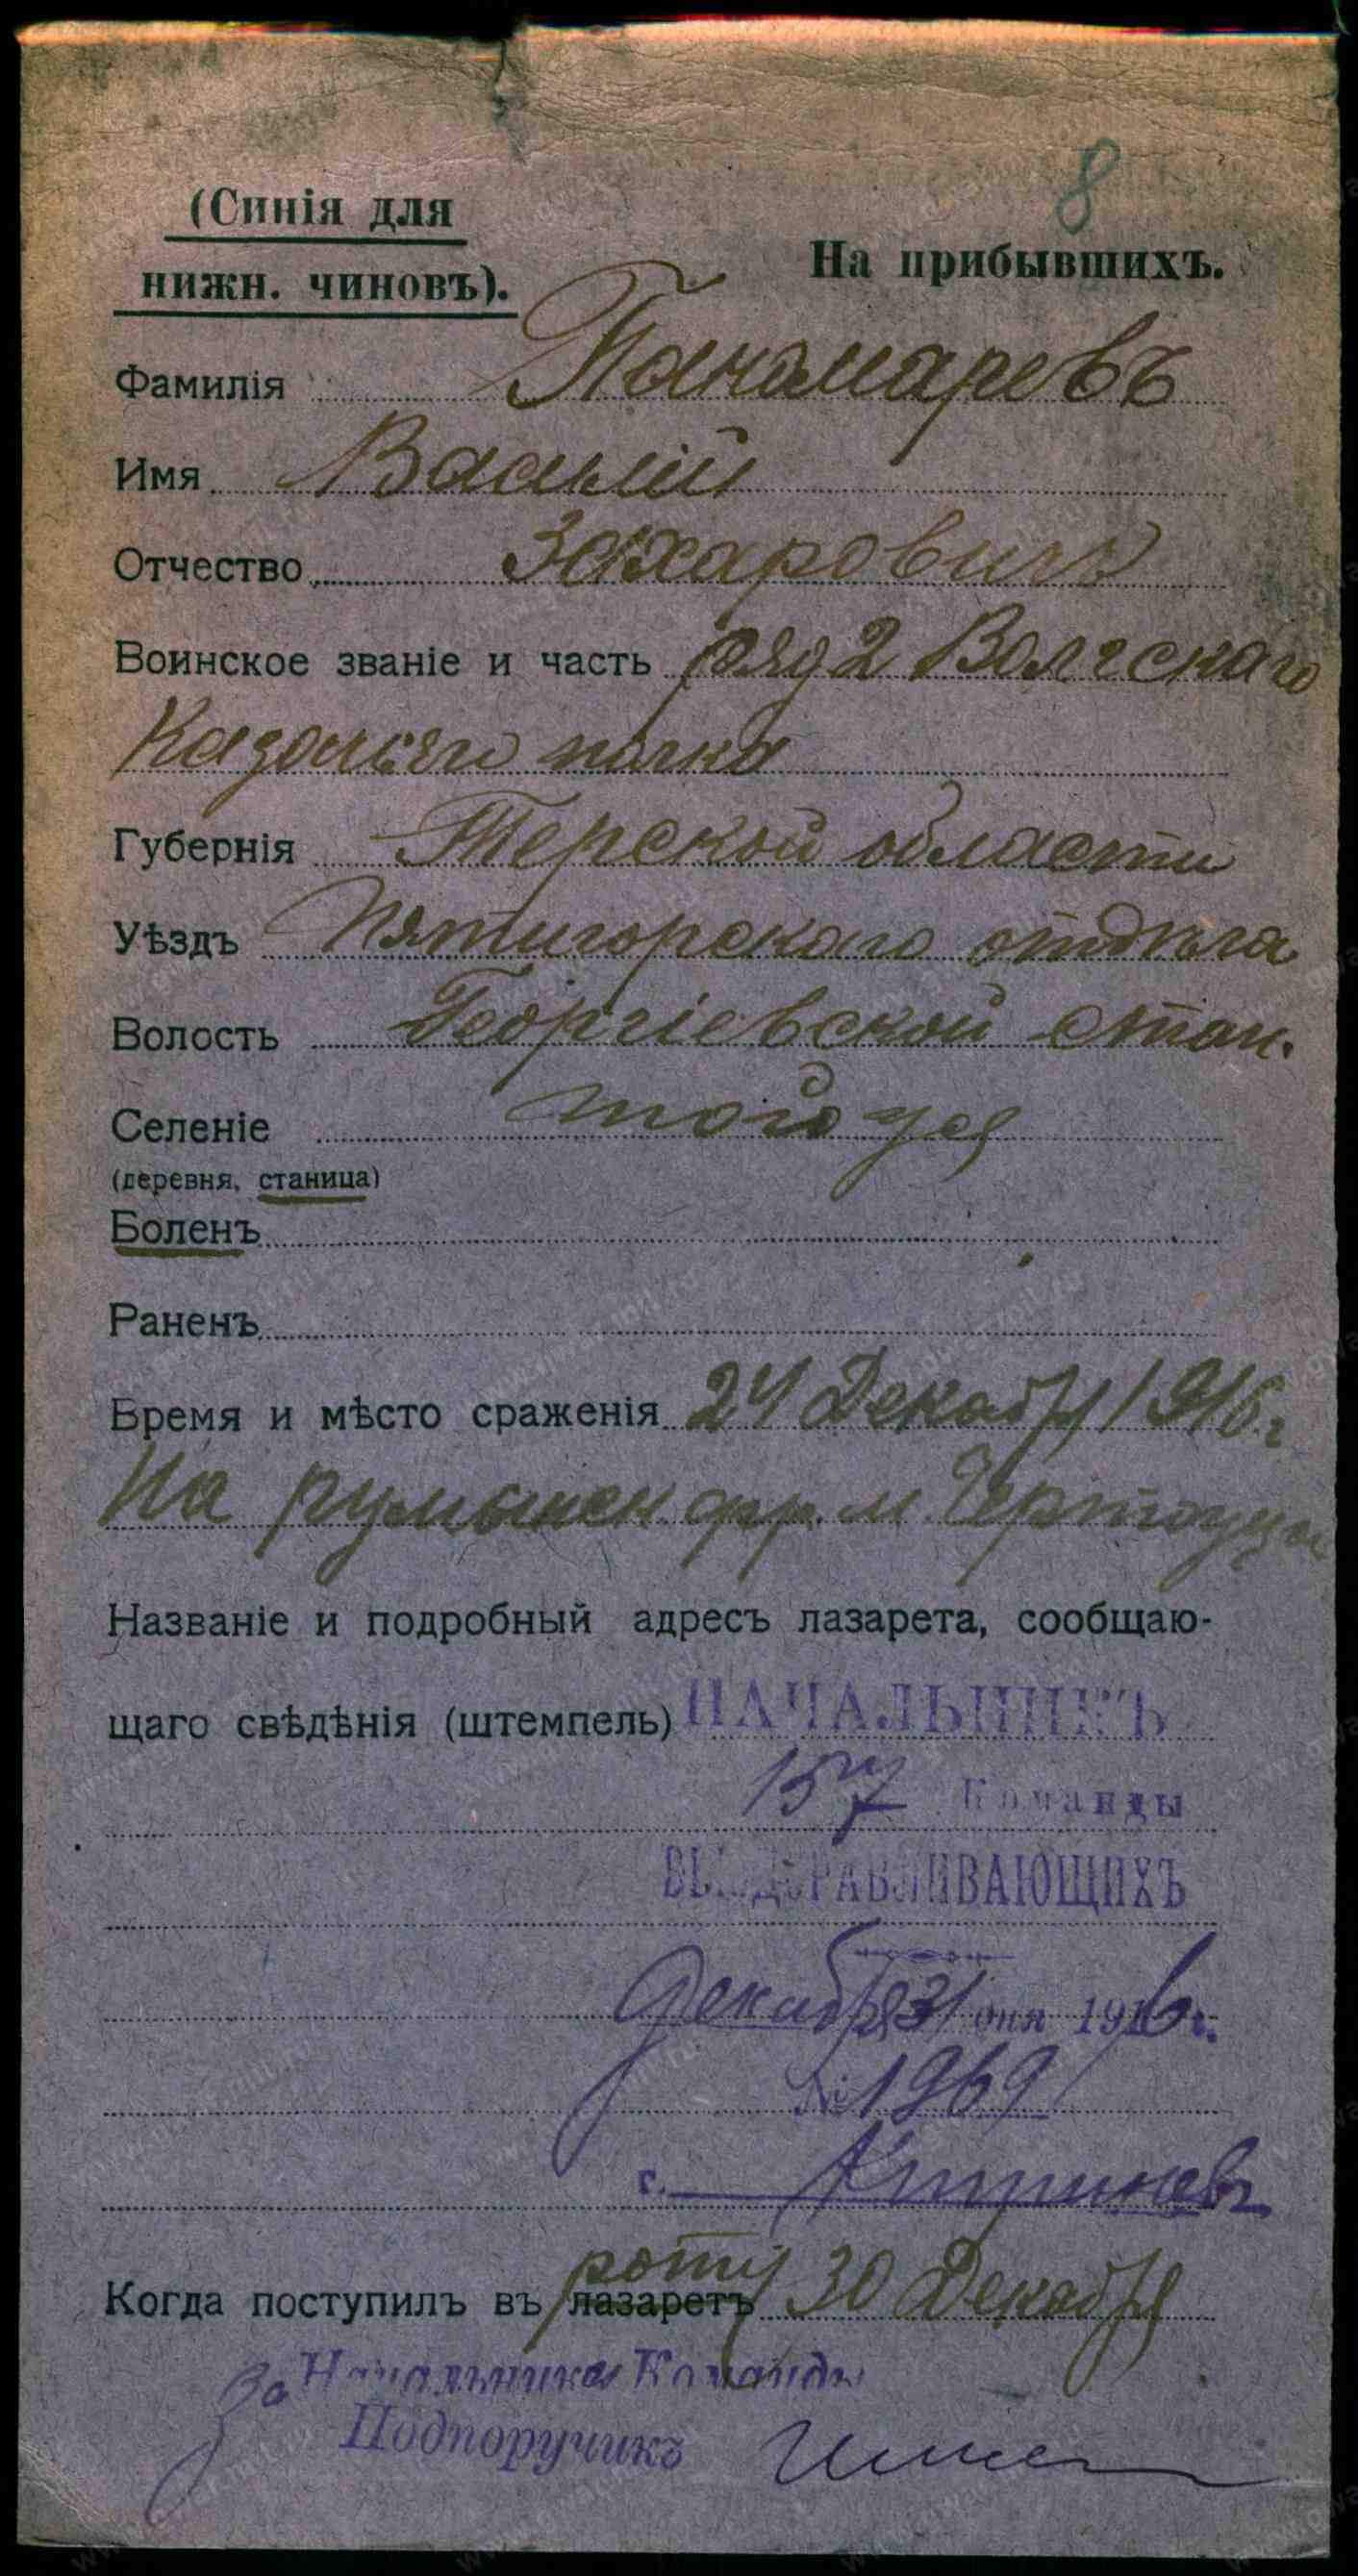 8
(Синія для
нижн. чиновъ).
На прибывшихъ.
Фамилія Панамаревъ
Имя Василій
Отчество Захаровичъ
Воинское званіе и часть ряд 2 Волгскаго
Казачьяго полка
Губернія Терской области
Уѣздъ Пятигорскаго отдѣла
Волость Георгіевской стан.
Селеніе тойже
(деревня, станица)
Боленъ
Раненъ
Время и мѣсто сраженія 24 Декабря 1916 г
На румынск фр. м.
Названіе и подробный адресъ лазарета, сообщаю-
щаго свѣдѣнія (штемпель) НАЧАЛЬНИКЪ
157 Команды
ВЫЗДОРАВЛИВАЮЩИХЪ
Декабря 31 дня 1916 г.
№ 1969
г. Кишиневъ
Когда поступилъ въ лазаретъ роту 30 Декабря
За Начальника Команды
Подпоручикъ